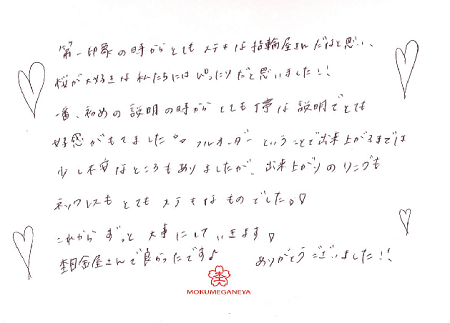 第一印象の時からとてもステキな指輪屋さんだなと思い、
桜が大好きな私たちにはぴったりだと思いました!!
一番、初めの説明の時からとても丁寧な説明でとても
好感がもてました。フルオーダーということで出来上がるまでは
少し不安なところもありましたが、出来上がりのリングも
ネックレスもとてもステキなものでした。
これからずっと大事にしていきます
杢目金屋さんで良かったですよ ありがとうございました!!
MOKUMEGANEYA